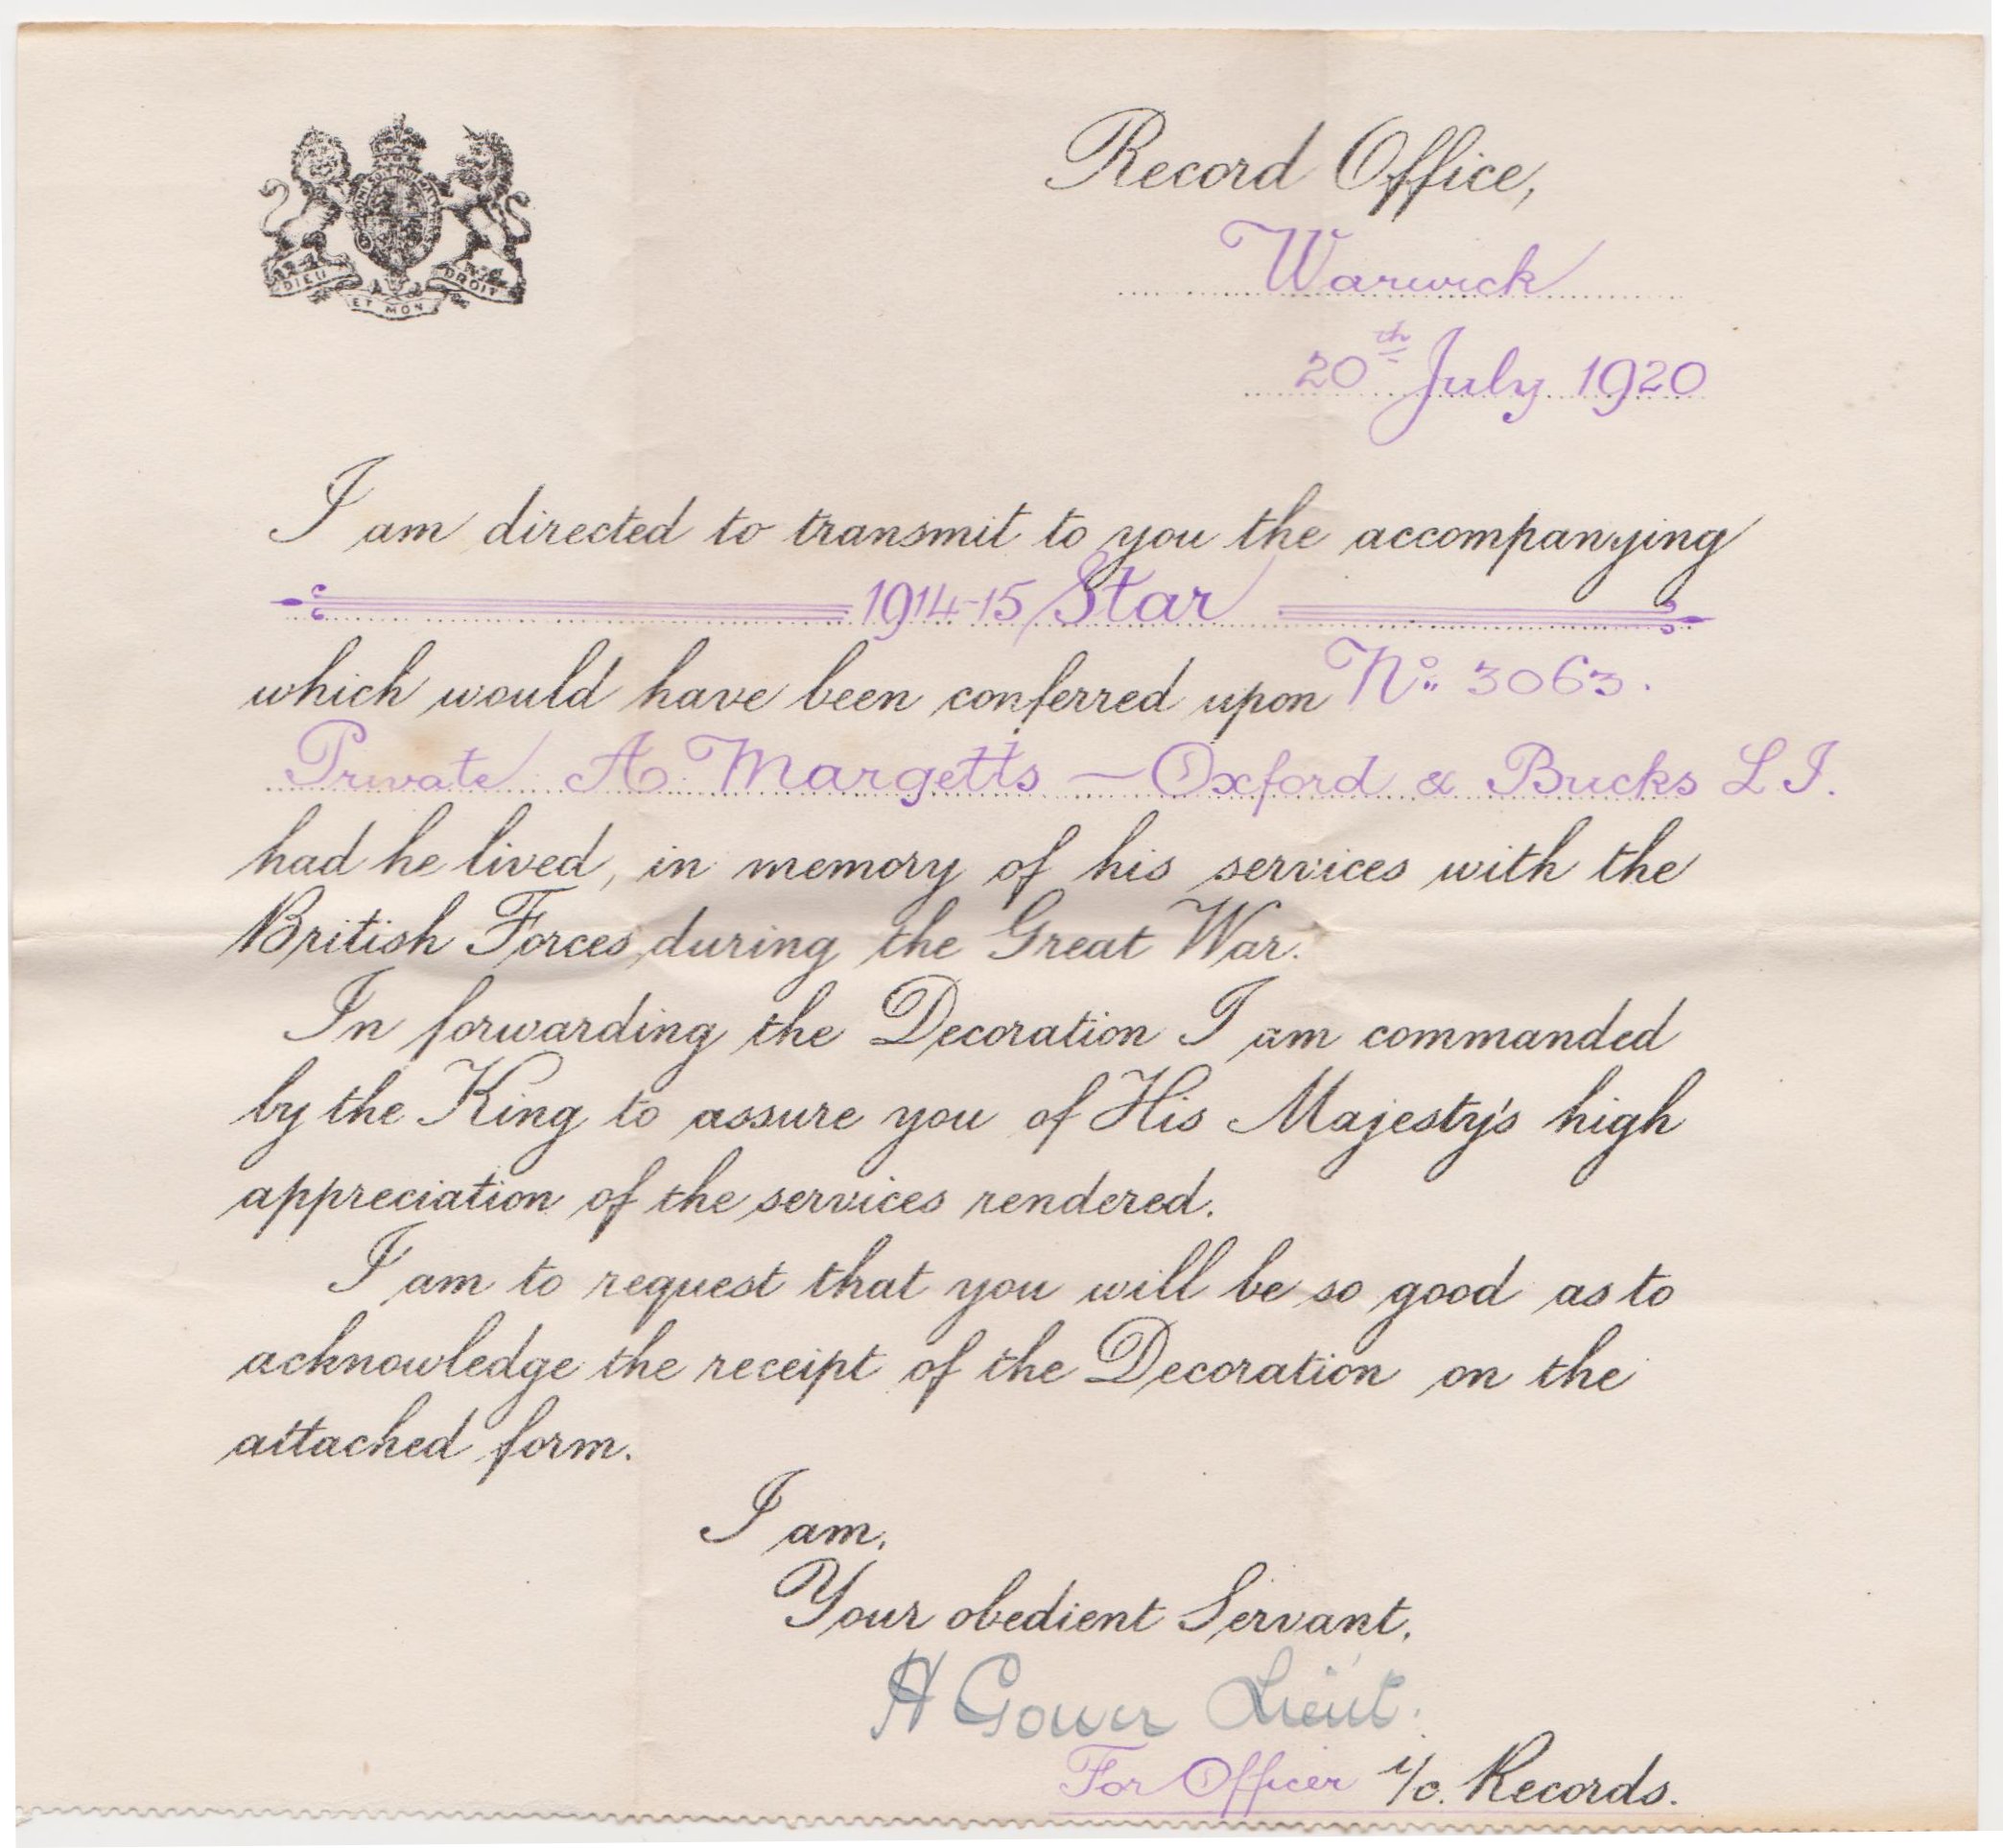 DIEU ET MON DROIT
Record Office,
Warwick
20th July 1920
I am directed to transmit to you the accompanying
1914-15 Star
which would have been conferred upon No. 3063.
Private A. Margetts — Oxford & Bucks L I.
had he lived, in memory of his services with the
British Forces during the Great War.
In forwarding the Decoration I am commanded
by the King to assure you of His Majesty's high
appreciation of the services rendered.
I am to request that you will be so good as to
acknowledge the receipt of the Decoration on the
attached form.
I am,
Your obedient Servant,
H Gower Lieut.
For Officer i/c. Records.